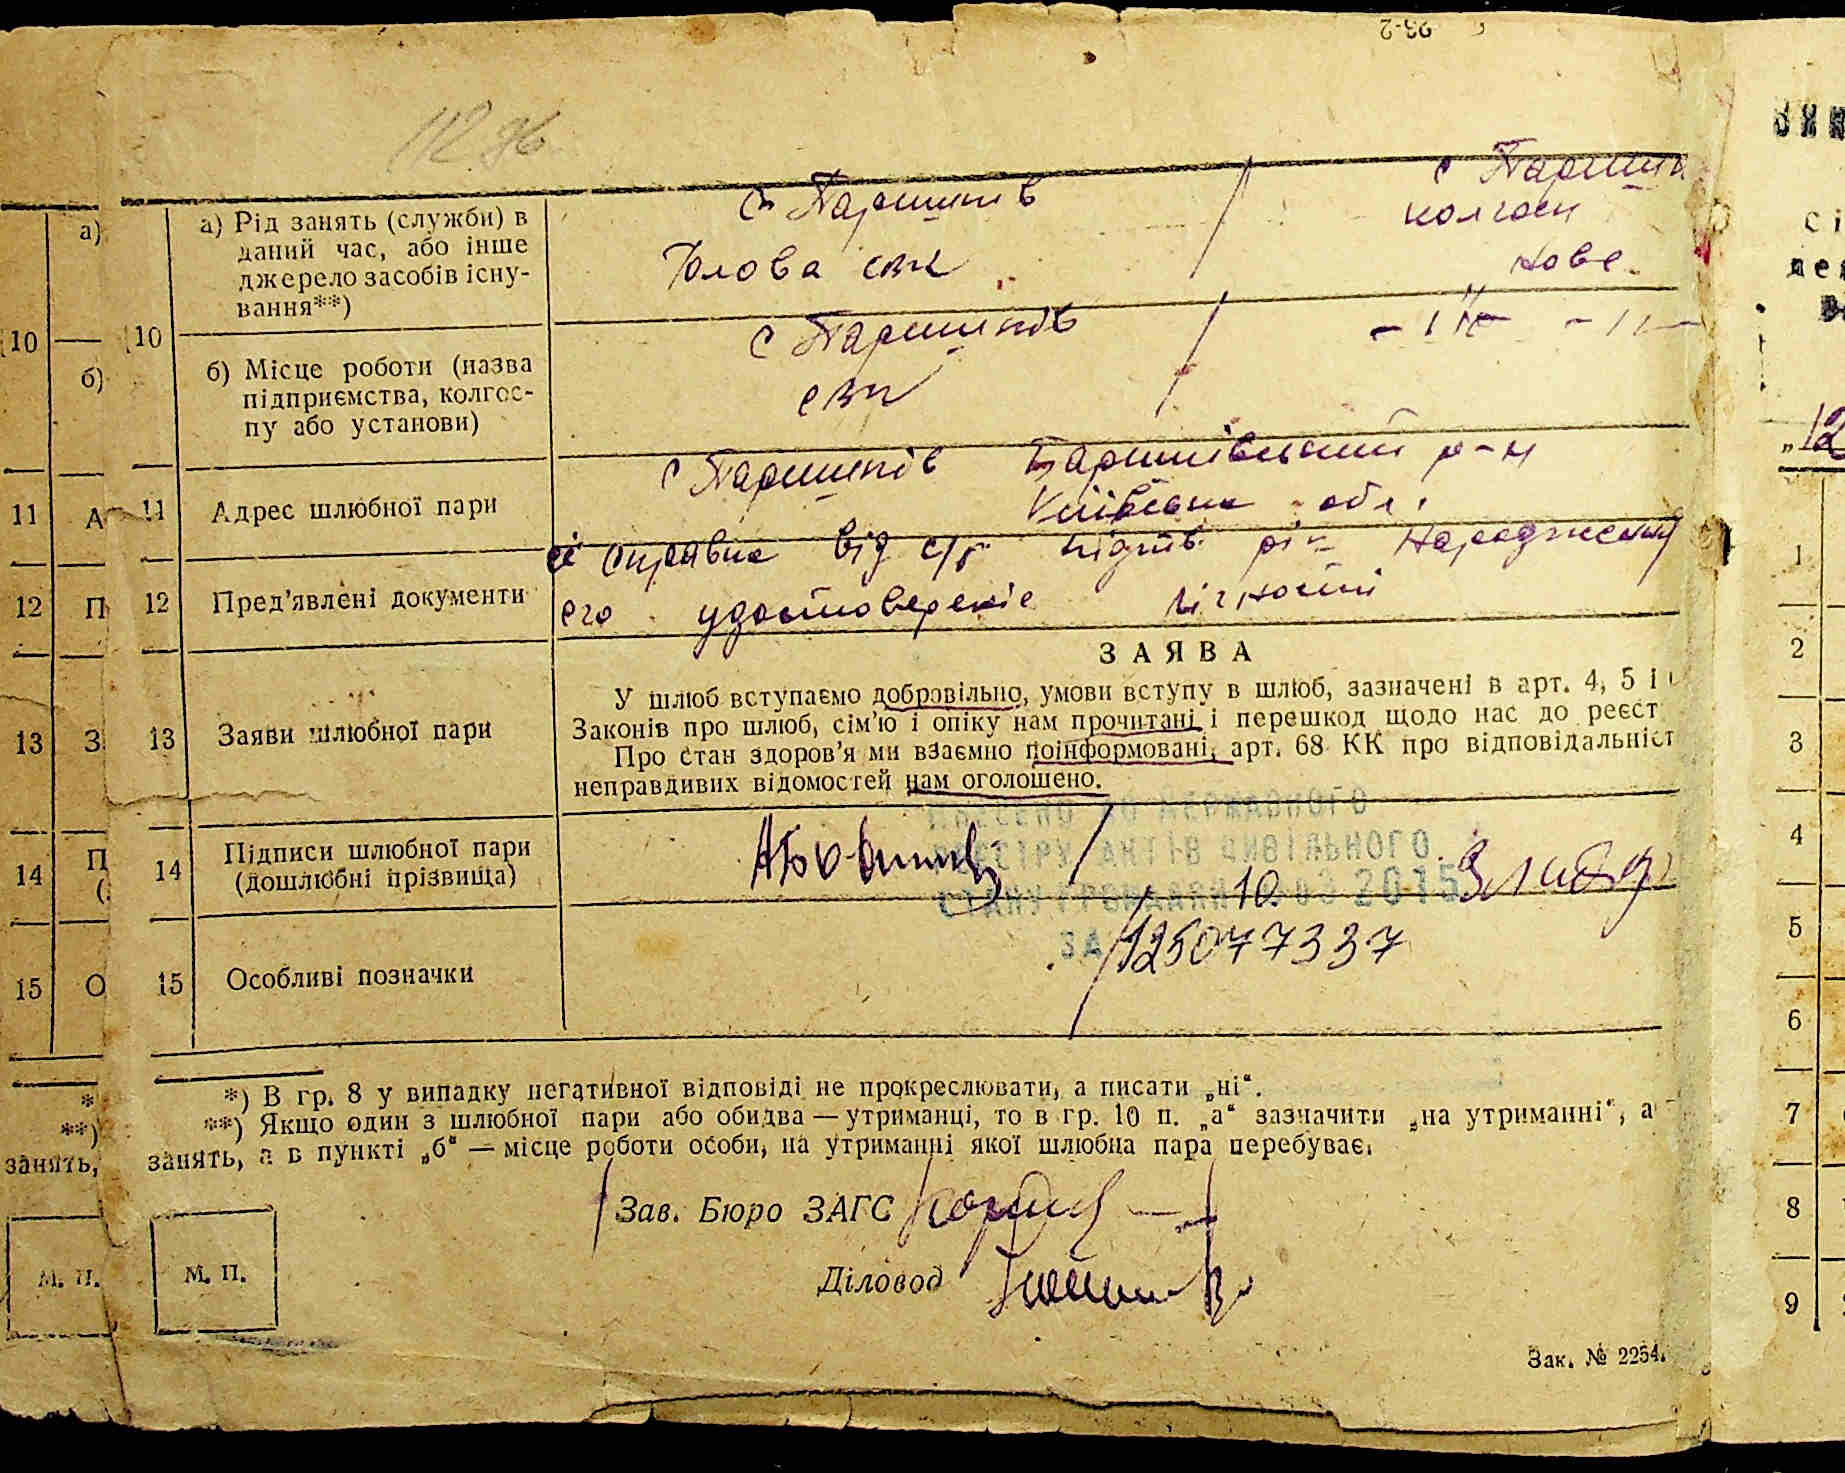 23-2
112 96
10
а)
а) Рід занять (служби) в
даний час, або інше
джерело засобів існу-
вання**)
с Паришків
Голова
с Париш
колгосп
нове
10
б)
б) Місце роботи (назва
підприємства, колгос-
пу або установи)
с Паришків
11
А
11
Адрес шлюбної пари
с Паришків Баришівський р-н
Київська обл.
12
П
12
Пред'явлені документи
її справка від с/р рік Народження
его удостоверение личности
13
З
13
Заяви шлюбної пари
ЗАЯВА
У шлюб вступаємо добровільно, умови вступу в шлюб, зазначені в арт. 4, 5 і
Законів про шлюб, сім'ю і опіку нам прочитані і перешкод щодо нас до реєст
Про стан здоров'я ми взаємно поінформовані, арт. 68 КК про відповідальніст
неправдивих відомостей нам оголошено.
14
П
14
Підписи шлюбної пари
(дошлюбні прізвища)
ВНЕСЕНО ДО ДЕРЖАВНОГО
РЕЄСТРУ АКТІВ ЦИВІЛЬНОГО
СТАНУ ГРОМАДЯН 10.03 2015
ЗА 125077337
15
О
15
Особливі позначки
*) В гр. 8 у випадку негативної відповіді не прокреслювати, а писати „ні“.
**) Якщо один з шлюбної пари або обидва — утриманці, то в гр. 10 п. „а“ зазначити „на утриманні“, а
занять, а в пункті „б“ — місце роботи особи, на утриманні якої шлюбна пара перебуває.
*
**)
занять,
Зав. Бюро ЗАГС
Діловод
М. П.
М. П.
Зак. № 2254.
„12
1
2
3
4
5
6
7
8
9